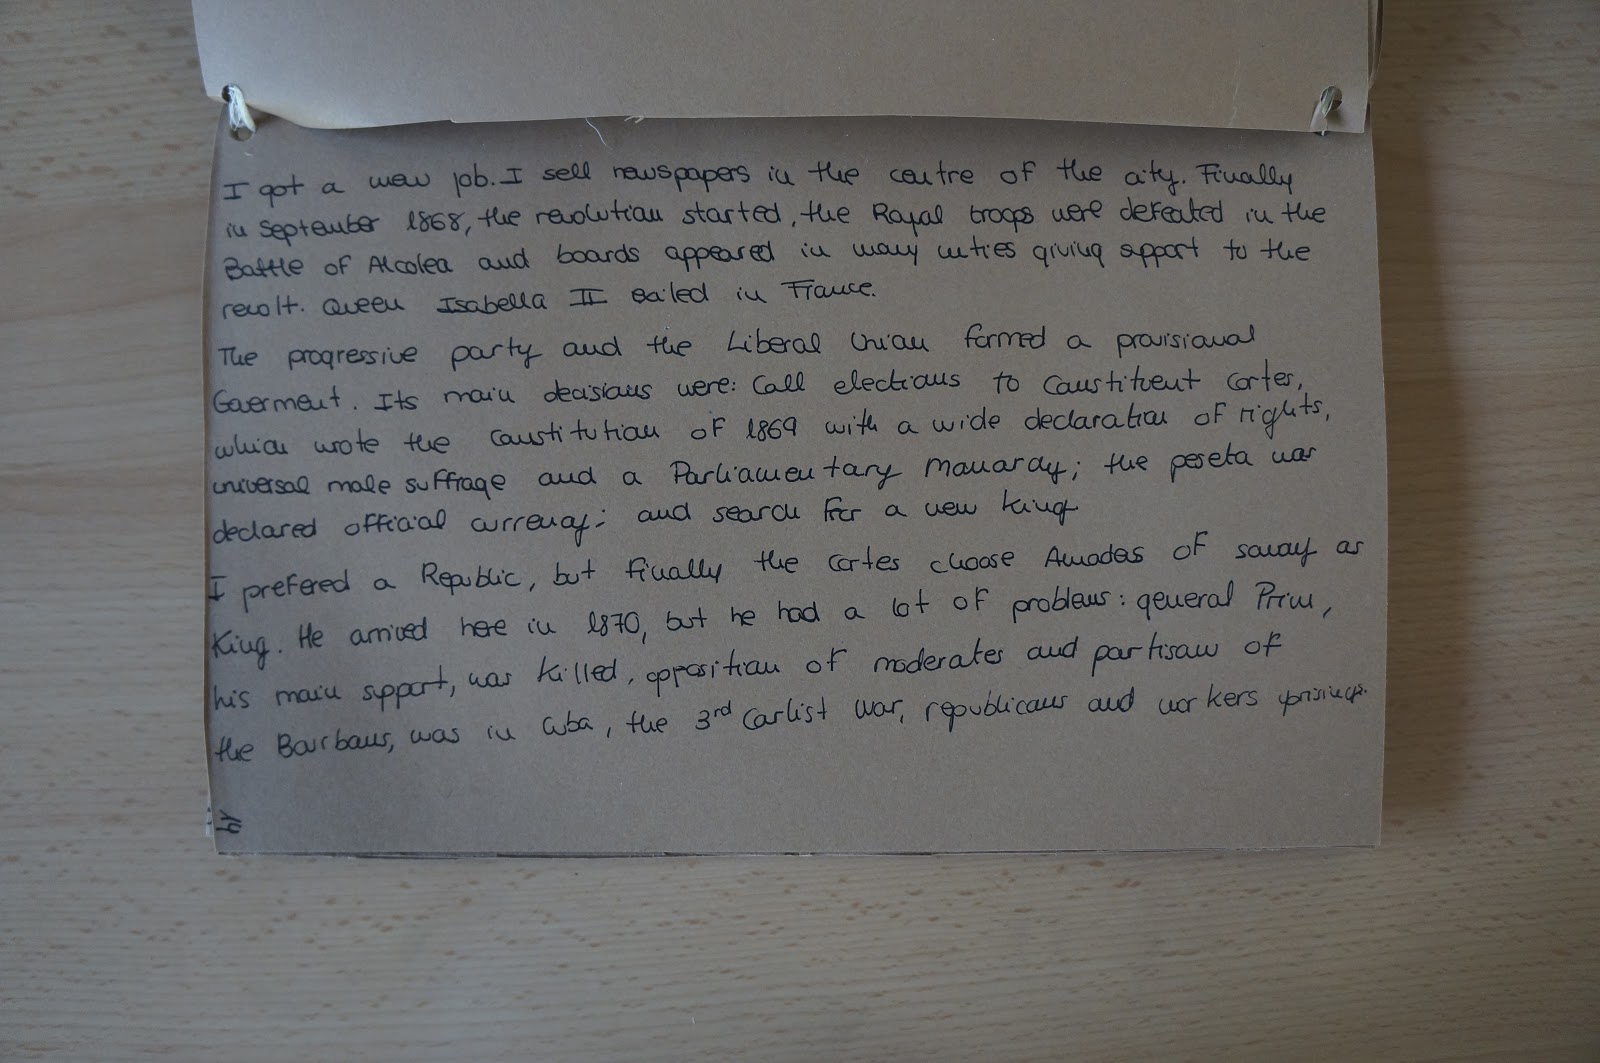 I got a new job. I sell newspapers in the centre of the city. Finally
in September 1868, the revolution started, the Royal troops were defeated in the
Battle of Alcolea and boards appeared in many cities giving support to the
revolt. Queen Isabella II exiled in France.
The progressive party and the Liberal Union formed a provisional
Goverment. Its main decisions were: Call elections to Constituent Cortes,
which wrote the Constitution of 1869 with a wide declaration of rights,
universal male suffrage and a Parliamentary Monarchy; the peseta was
declared official currency; and search for a new king
I prefered a Republic, but finally the Cortes choose Amadeo of Savoy as
King. He arrived here in 1870, but he had a lot of problems: general Prim,
his main support, was killed, opposition of moderates and partisan of
the Bourbons, was in Cuba, the 3rd Carlist War, republicans and workers uprisings.